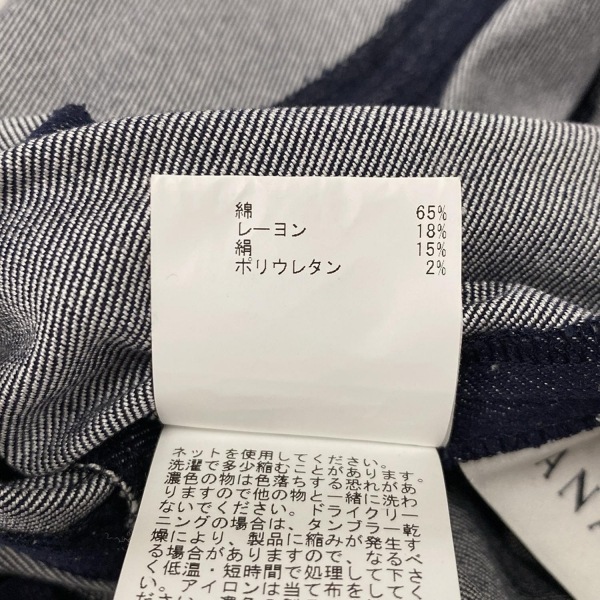 綿 65%
レーヨン 18%
絹 15%
ポリウレタン 2%
ネットを使用してください。
洗濯で多少縮むことがあります。
濃色の物は色落ちする恐れがあ
りますので他の物と一緒に洗わ
ないでください。ドライクリー
ニングの場合は、タンブラー乾
燥により、製品に縮みが発生す
る場合がありますので、なるべ
く低温・短時間で処理して下さ
い。アイロンは当て布をしてく
ANA